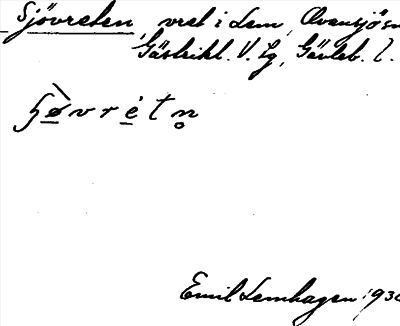 Sjövreten vret i Lem, Ovansjö sn
Gästrikl. V. Lg, Gävleb. l.
ʃøvretn
Emil Lemhagen 193